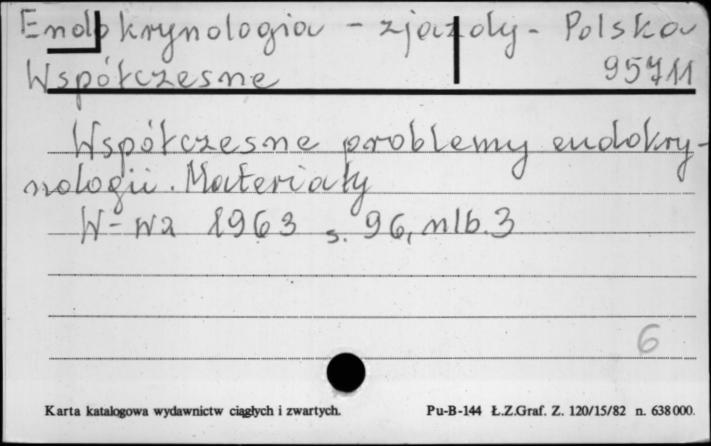 Endokrynologia - zjazdy - Polska
Współczesne 95711
Współczesne problemy endokry-
nologii. Materiały
W-wa 1963 s. 96, nlb. 3
6
Karta katalogowa wydawnictw ciągłych i zwartych. Pu-B-144 Ł.Z.Graf. Z. 120/15/82 n. 638000.